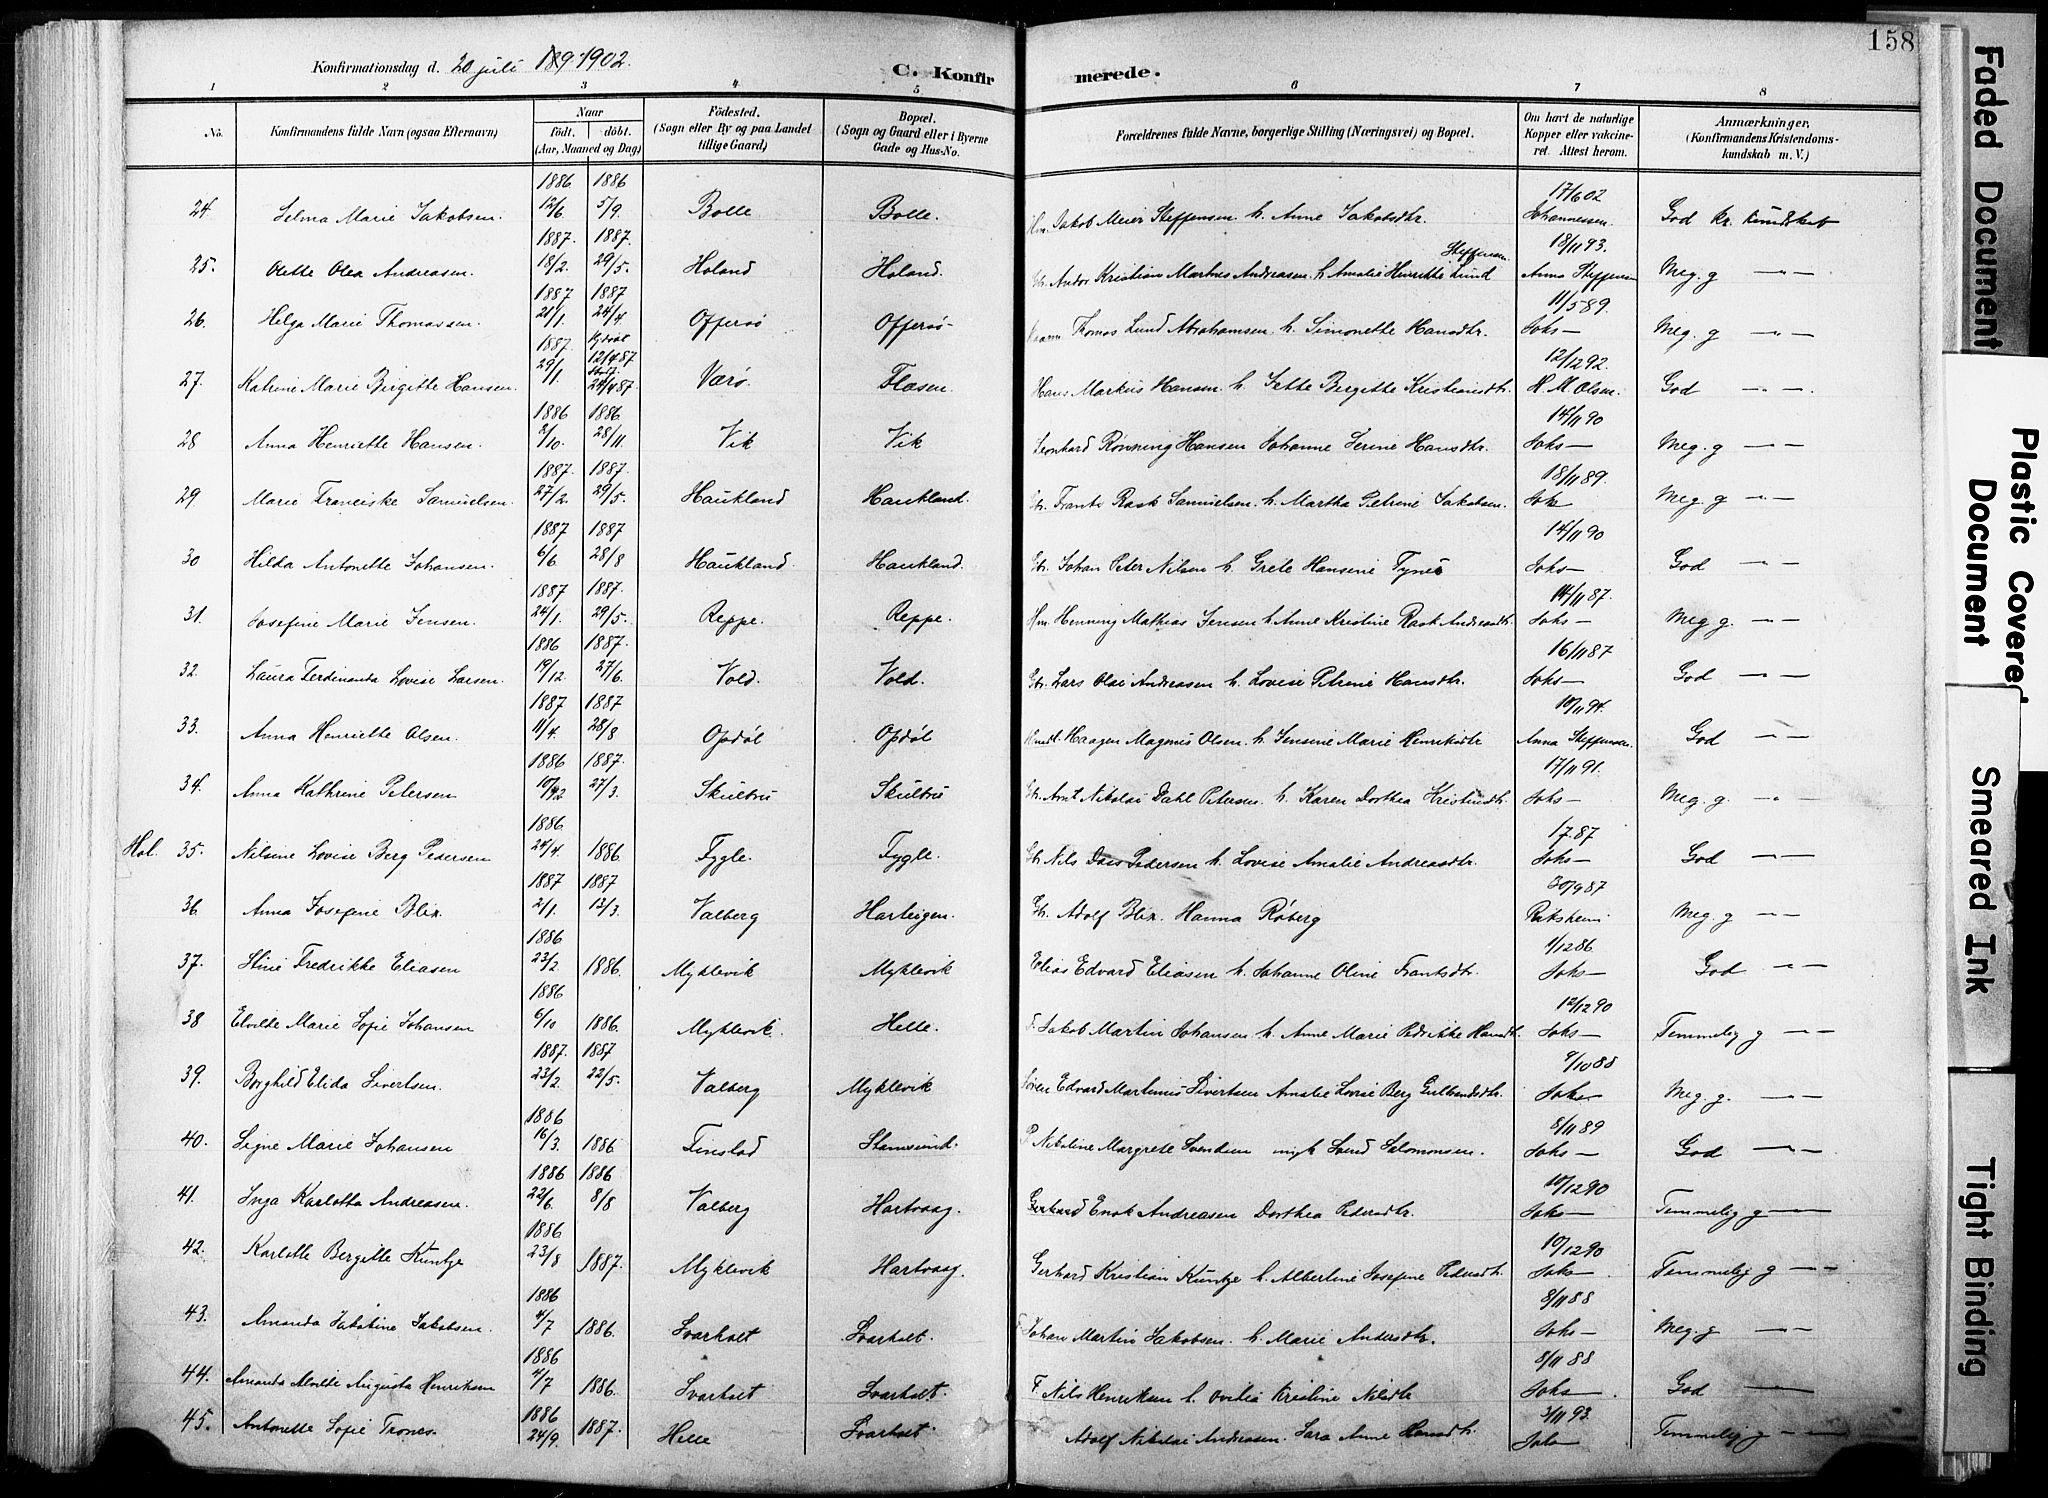 158
Konfirmationsdag d. 20 juli 189 1902.
C. Konfirmerede.
1 2 3 4 5 6 7 8
No. Konfirmandens fulde Navn (ogsaa Efternavn) Naar født. døbt. (Aar, Maaned og Dag) Födested. (Sogn eller By og paa Landet tillige Gaard) Bopæl. (Sogn og Gaard eller i Byerne Gade og Hus-No. Forældrenes fulde Navne, borgerlige Stilling (Næringsvei) og Bopæl. Om havt de naturlige Kopper eller vakcineret. Attest herom. Anmærkninger, (Konfirmandens Kristendomskundskab m. V.)
24. Selma Marie Jakobsen. 1886 12/6. 1886 5/9. Bolle Bolle. Jakob Meier Steffensen. h. Anne Jakobsdtr. 17/6 02 Johannessen. God kr. kundskab
25. Olette Olea Andreasen. 1887. 18/2. 1887. 29/5. Holand Holand. Andor Kristian Martins Andreasen. h. Amalie Henrikke Lund Steffensen 18/11 93. Anna Steffensen Meg. g — —
26. Helga Marie Thomassen. 1887 21/1. 1887 24/4 Offersø Offersø Thomas Lund Abrahamsen. h. Simonette Hansdtr. 11/5 89. Joks — Meg. g — —
27. Katrine Marie Birgitte Hansen. 1887. 29/1. 12/4 87 24/4 87 Værø. Flæsen Hans Markus Hansen. h. Jette Bergitte Kristiansdtr. 12/12 92. H. M. Olsen. God — —
28 Anna Henriette Hansen. 1886 2/10. 1886 28/11 Vik Vik Leonhard Rønning Hansen Johanne Serine Hansdtr. 14/11 90 Joks — Meg. g — —
29. Marie Franciske Samuelsen. 1887. 27/2. 1887. 29/5. Haukland Haukland. Frants Rask Samuelsen. h. Martha Petrine Jakobsen. 18/11 89. Joks Meg. g — —
30 Hilda Antonette Johansen. 1887 6/6. 1887 28/8 Haukland. Haukland. Johan Peter Nilsen h. Grete Hansine Tynes 14/11 90 Joks — God — —
31. Josefine Marie Jensen. 1887 24/1. 1887. 29/5. Reppe. Reppe. Hm. Henning Mathias Jensen h. Anne Kristine Rask Andreasdtr. 14/11 87. Joks — Meg g. — —
32. Laura Ferdinanda Lovise Larsen. 1886 19/12 1887. 27/6. Vold. Vold. Lars Olai Andreasen h. Lovise Petrine Hansdtr. 16/11 87 Joks — God — —
33. Anna Henriette Olsen. 1887 11/4. 1887 28/8 Opdøl Opdøl Haagen Magnus Olsen. h. Jensine Marie Henriksdtr 10/11 94. Anna Steffensen. God — —
34. Anna Kathrine Petersen 1886 10/12 1887. 27/3. Skulbru Skulbru Arnt Nikolai Dahl Petersen. h. Karen Dorthea Kristiansdtr. 17/11 91. Joks — Meg. g. — —
Hol. 35. Nilsine Lovise Berg Pedersen 1886 24/4. 1886 Fygle. Fygle. Nils Daes Pedersen h. Lovise Amalie Andreasdtr. 17.87 Joks — God — —
36 Anna Josefine Blix. 1887 2/1. 1887 13/3. Valberg Harteigen. Adolf Blix. Hanna Røberg 30/9 87 Rikshein Meg. g — —
37. Stine Fredrikke Eliasen 1886 23/2 1886. Myklevik Myklevik Elias Edvard Eliasen h. Johanne Oline Frantsdtr. 1/12 86. Joks — God — —
38 Elvilde Marie Sofie Johansen 1886 6/10 1886. Myklevik. Helle. F. Jakob Martin Johansen h. Anne Marie Pedrikke Hansdtr. 12/12 90 Joks — Temmelig g — —
39. Borghild Elida Sivertsen. 1887. 23/2. 1887 22/5. Valberg Myklevik Sören Edvard Martinus Sivertsen Amalie Lovise Berg Gulbrandsdtr. 9/10 88 Joks — Meg. g. — —
40. Signe Marie Johansen 1886 16/3. 1886 Finstad Stamsund. P Nikoline Margrete Svendsen Svend Salomonsen. 8/11 89 Joks — God — —
41. Inga Karlotta Andreasen. 1886 22/6. 1886 8/8 Valberg Hartvaag. Gerhard Enok Andreasen Dorthea Pedersdtr. 10/12 90 Joks — Temmelig g — —
42. Karlotte Bergitte Kuntze 1886 23/8 1887. Myklevik Hartvaag. Gerhard Kristian Kuntze h. Albertine Josefine Pedersdtr. 10/12 90 Joks — Temmelig g — —
43. Amanda Jakobine Jakobsen. 1886 4/7 1886. Svarholt Svarholt. Johan Martin Jakobsen. h. Marie Andersdtr. 8/11 88 Joks — Meg. g — —
44. Amanda Alvilde Augusta Henriksen 1886 4/7 1886. Svarholt Svarholt. F. Nils Henriksen h. Ovidia Kristine Nilsdtr 8/11 88 Joks — God —
45. Antonette Sofie Trones. 1886 24/9. 1887. Helle Svarholt Adolf Nikolai Andreasen. Sara Anne Hansdtr. 3/11 93. Joks Temmelig g — —
Faded Document
Plastic Covered Document
Smeared Ink
Tight Binding